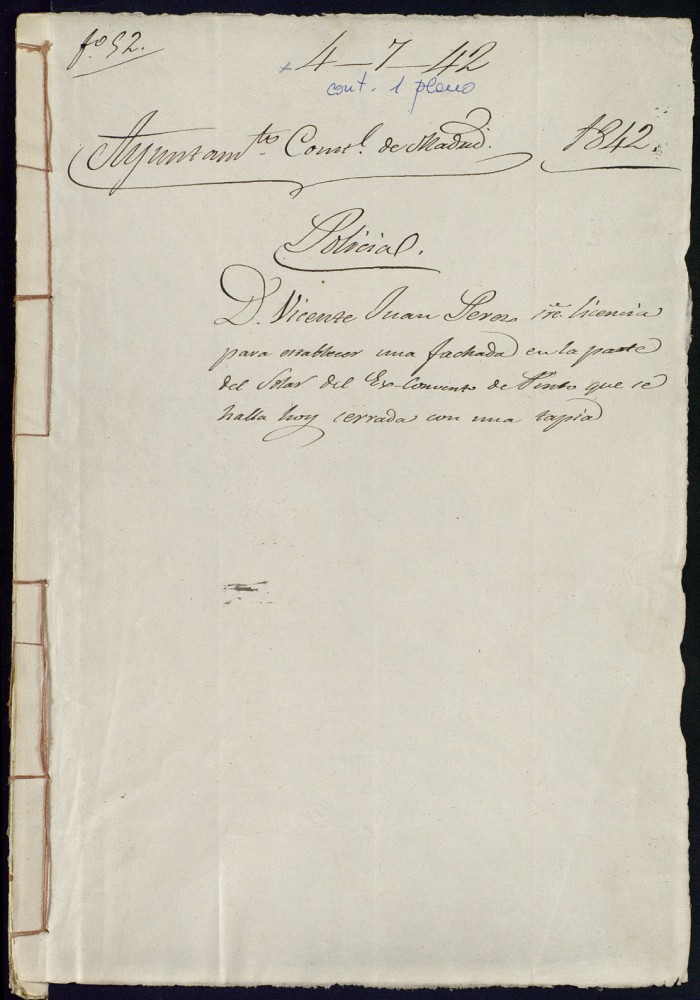 fº 52.
4-7-42
cont. 1 plano
Ayuntamto. Constl. de Madrid. 1842.
Policia.
D. Vicente Juan Perez sre. licencia
para establecer una fachada en la parte
del Solar del Ex-Convento de Pinto que se
halla hoy cerrada con una tapia